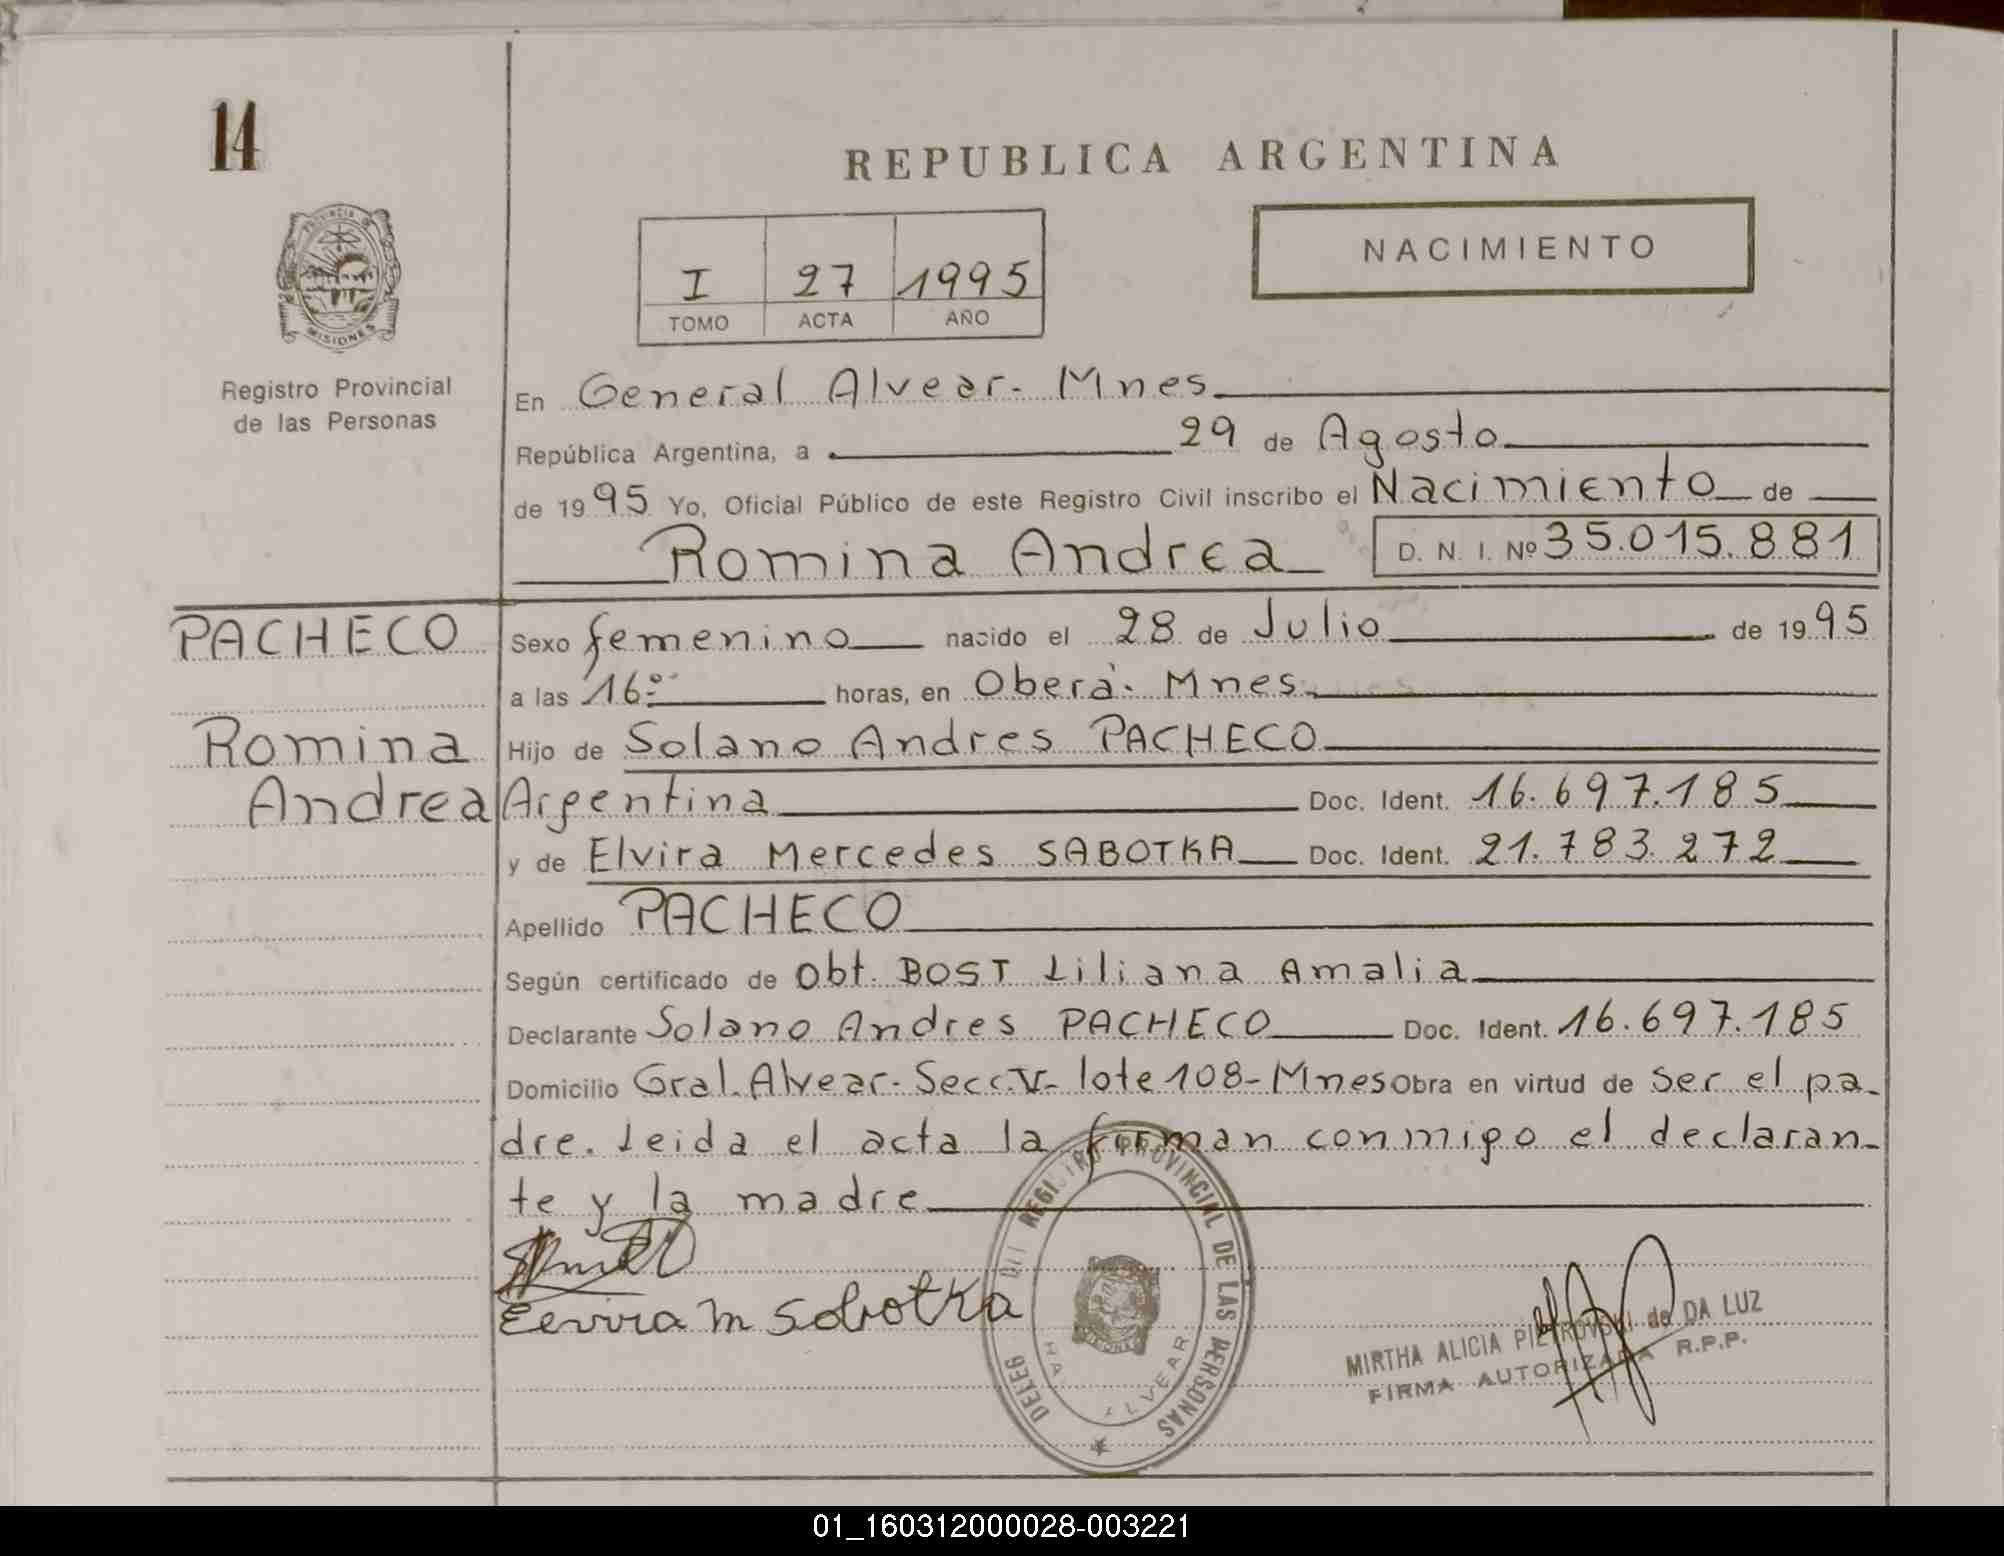 14
REPUBLICA ARGENTINA
NACIMIENTO
I 27 1995
TOMO ACTA AÑO
PROVINCIA DE
MISIONES
Registro Provincial
de las Personas
En General Alvear - Mnes
República Argentina, a 29 de Agosto
de 1995 Yo, Oficial Público de este Registro Civil inscribo el Nacimiento de
Romina Andrea D. N. I. Nº 35.015.881
PACHECO
Romina
Andrea
Sexo femenino nacido el 28 de Julio de 1995
a las 16º horas, en Oberá. Mnes
Hijo de Solano Andres PACHECO
Argentina Doc. Ident. 16.697.185
y de Elvira Mercedes SABOTKA Doc. Ident. 21.783.272
Apellido PACHECO
Según certificado de Obt. BOST Liliana Amalia
Declarante Solano Andres PACHECO Doc. Ident. 16.697.185
Domicilio Gral. Alvear - Secc. V - lote 108 - Mnes Obra en virtud de ser el pa-
dre. Leida el acta la firman conmigo el declaran-
te y la madre
M Sobotka
REGISTRO PROVINCIAL DE LAS PERSONAS
DELEG
ALVEAR
MISIONES
MIRTHA ALICIA PIETROVSKI de DA LUZ
FIRMA AUTORIZADA R.P.P.
01_160312000028-003221